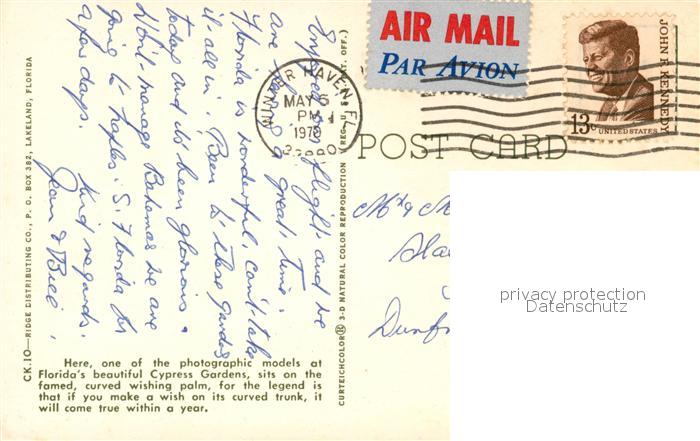 AIR MAIL
PAR AVION
JOHN F. KENNEDY
13c
UNITED STATES
WINTER HAVEN, FL
MAY 5
PM
1973
POST CARD
Enjoyed our flight and we
are having a great time.
Florida is wonderful, can't take
it all in. Been to these gardens
today and it's been glorious.
Won't manage Bahamas we are
going to Naples S. Florida for
a few days.
Kind regards.
Jean & Bill.
CK.10—RIDGE DISTRIBUTING CO., P. O. BOX 382, LAKELAND, FLORIDA
CURTEICHCOLOR® 3-D NATURAL COLOR REPRODUCTION (REG. U. S. PAT. OFF.)
Mr & M
Dunf
privacy protection
Dunfermline
Here, one of the photographic models at
Florida's beautiful Cypress Gardens, sits on the
famed, curved wishing palm, for the legend is
that if you make a wish on its curved trunk, it
will come true within a year.